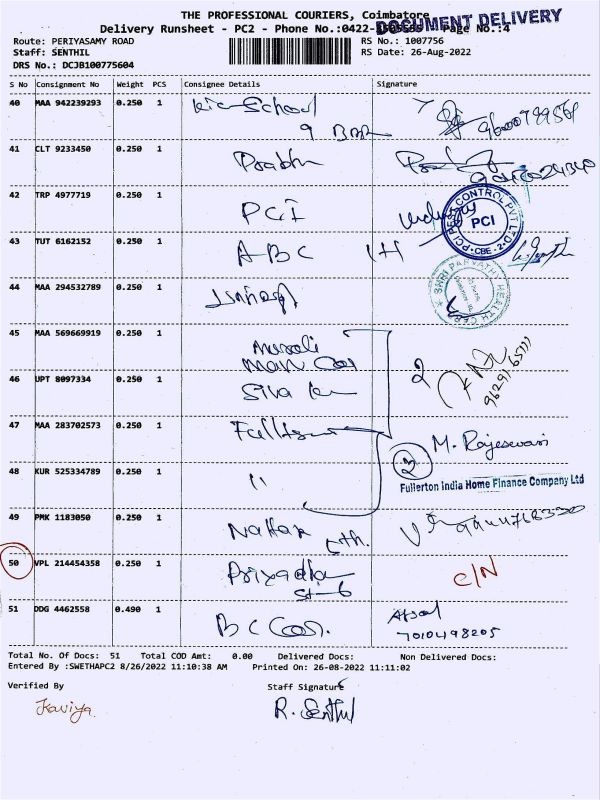 THE PROFESSIONAL COURIERS, Coimbatore
DOCUMENT DELIVERY
Delivery Runsheet - PC2 - Phone No.:0422- Page No.:4
Route: PERIYASAMY ROAD
RS No.: 1007756
Staff: SENTHIL
RS Date: 26-Aug-2022
DRS No.: DCJB100775604
S No Consignment No Weight PCS Consignee Details Signature
40 MAA 942239293 0.250 1 School
41 CLT 9233450 0.250 1 Prabhu
42 TRP 4977719 0.250 1 PCI
PCI PEST CONTROL PVT LTD
PCI
CBE - 2
43 TUT 6162152 0.250 1 ABC
44 MAA 294532789 0.250 1
SHRI PARVATHI HEALTH CERA
45 MAA 569669919 0.250 1 Murali
46 UPT 8097334 0.250 1 Siva 2 9629165111
47 MAA 283702573 1 M. Rajeswari
48 KUR 525334789 0.250 1 " 2
Fullerton India Home Finance Company Ltd
49 PMK 1183050 0.250 1
50 VPL 214454358 0.250 1 C/N
51 DDG 4462558 0.490 1 BC
7010498205
Total No. Of Docs: 51 Total COD Amt: 0.00 Delivered Docs: Non Delivered Docs:
Entered By :SWETHAPC2 8/26/2022 11:10:38 AM Printed On: 26-08-2022 11:11:02
Verified By Staff Signature
Kaviya R. Senthil